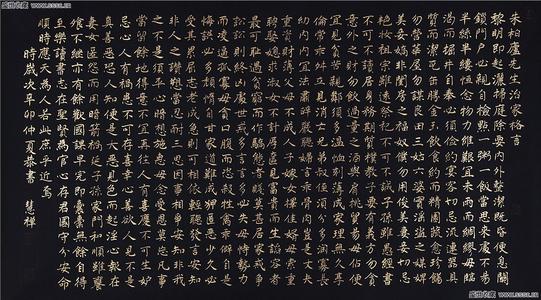 朱柏廬先生治家格言
黎明即起灑掃庭除要內外整潔既昏便息關
鎖門戶必親自檢點一粥一飯當思來處不易
半絲半縷恆念物力維艱宜未雨而綢繆毋臨
渴而掘井自奉必須儉約宴客切忌流連器具
質而潔瓦缶勝金玉飲食約而精園蔬愈珍饈
勿營華屋勿謀良田三姑六婆實淫盜之媒婢
美妾嬌非閨房之福奴僕勿用俊美妻妾切忌
艷妝祖宗雖遠祭祀不可不誠子孫雖愚經書
不可不讀居身務期質樸教子要有義方勿貪
意外之財勿飲過量之酒與肩挑貿易毋佔便
宜見貧苦親鄰須多溫恤刻薄成家理無久享
倫常乖舛立見消亡兄弟叔侄須分多潤寡長
幼內外宜法肅辭嚴聽婦言乖骨肉豈是丈夫
重資財薄父母不成人子嫁女擇佳婿毋索重
聘娶媳求淑女勿計厚奩見富貴而生諂容者
最可恥遇貧窮而作驕態者賤莫甚居家戒爭
訟訟則終凶處世戒多言言多必失毋恃勢力
而凌逼孤寡毋貪口腹而恣殺牲禽乖僻自是
悔誤必多頹惰自甘家道難成狎暱惡少久必
受其累屈志老成急則可相依輕聽發言安知
非人之譖愬當忍耐三思因事相爭安知非我
之不是須平心暗想施惠毋念受恩莫忘凡事
當留餘地得意不宜再往人有喜慶不可生妒
忌心人有禍患不可生喜幸心善欲人見不是
真善惡恐人知便是大惡見色而起淫心報在
妻女匿怨而用暗箭禍延子孫家門和順雖饔
飧不繼亦有餘歡國課早完即囊橐無餘自得
至樂讀書志在聖賢為官心存君國守分安命
順時聽天為人若此庶乎近焉
時歲次辛卯仲夏恭書 慧樺
盛世收藏